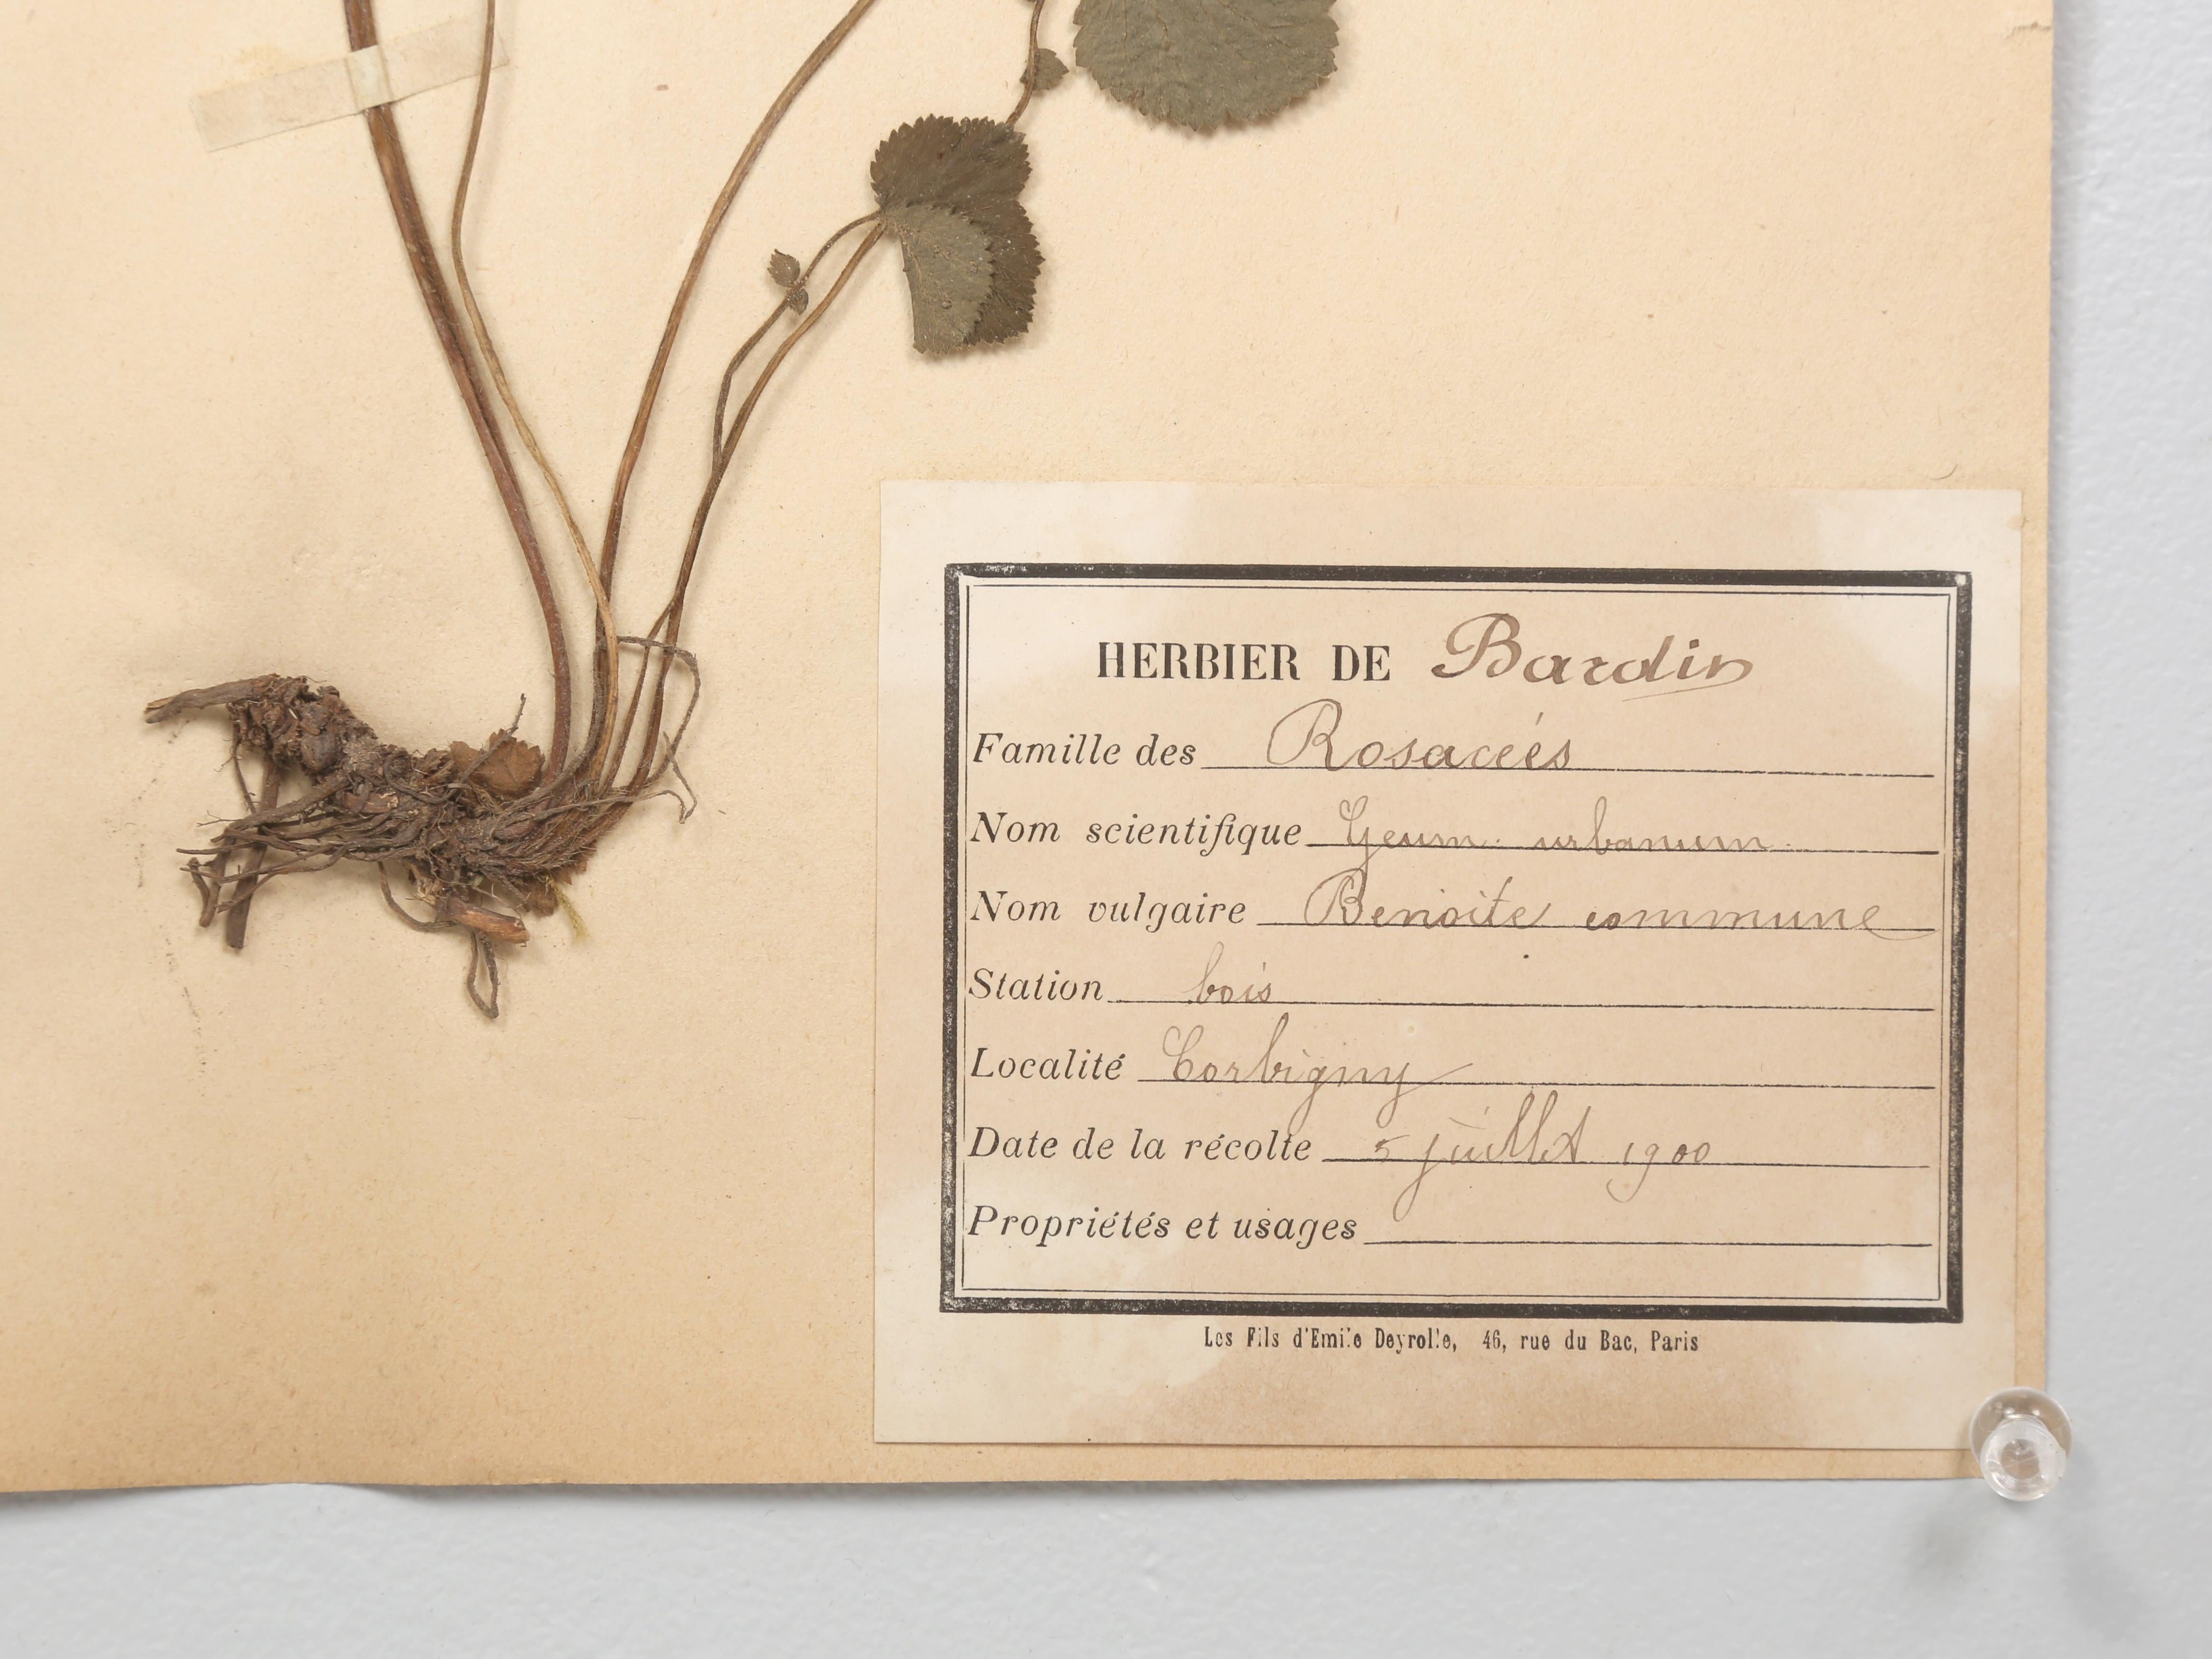 HERBIER DE Bardin
Famille des Rosacées
Nom scientifique Geum urbanum
Nom vulgaire Benoite commune
Station bois
Localité Corbigny
Date de la récolte 5 juillet 1900
Propriétés et usages
Les Fils d'Emile Deyrolle, 46, rue du Bac, Paris